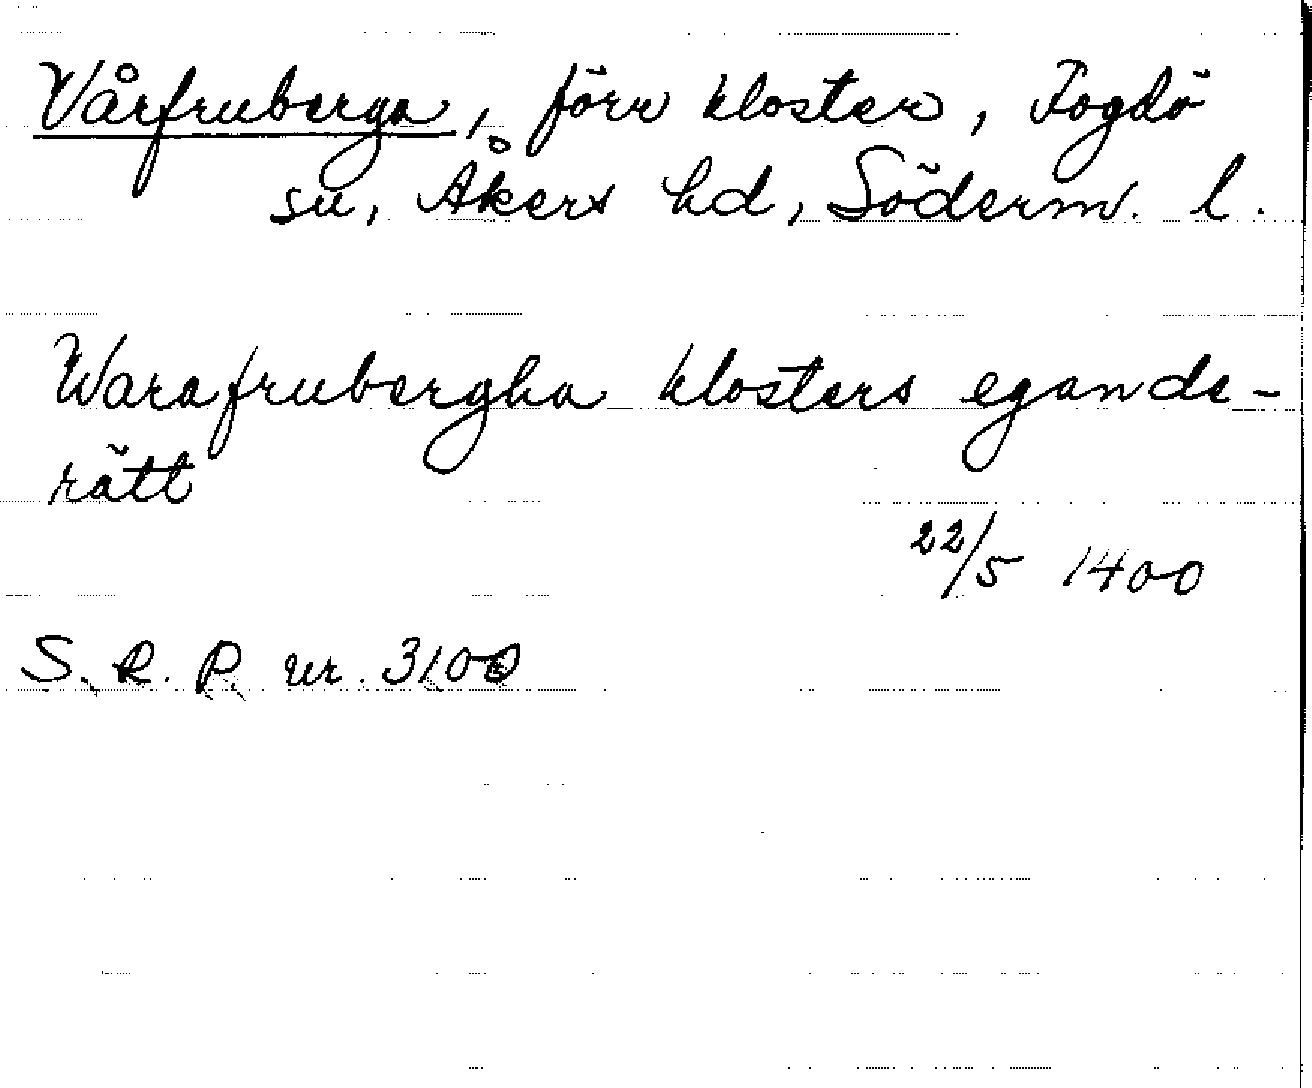 Vårfruberga, förr kloster, Fogdö
sn, Åkers hd, Söderm. l.
Warafrubergha klosters egande-
rätt
22/5 1400
S. R. P. nr. 3100